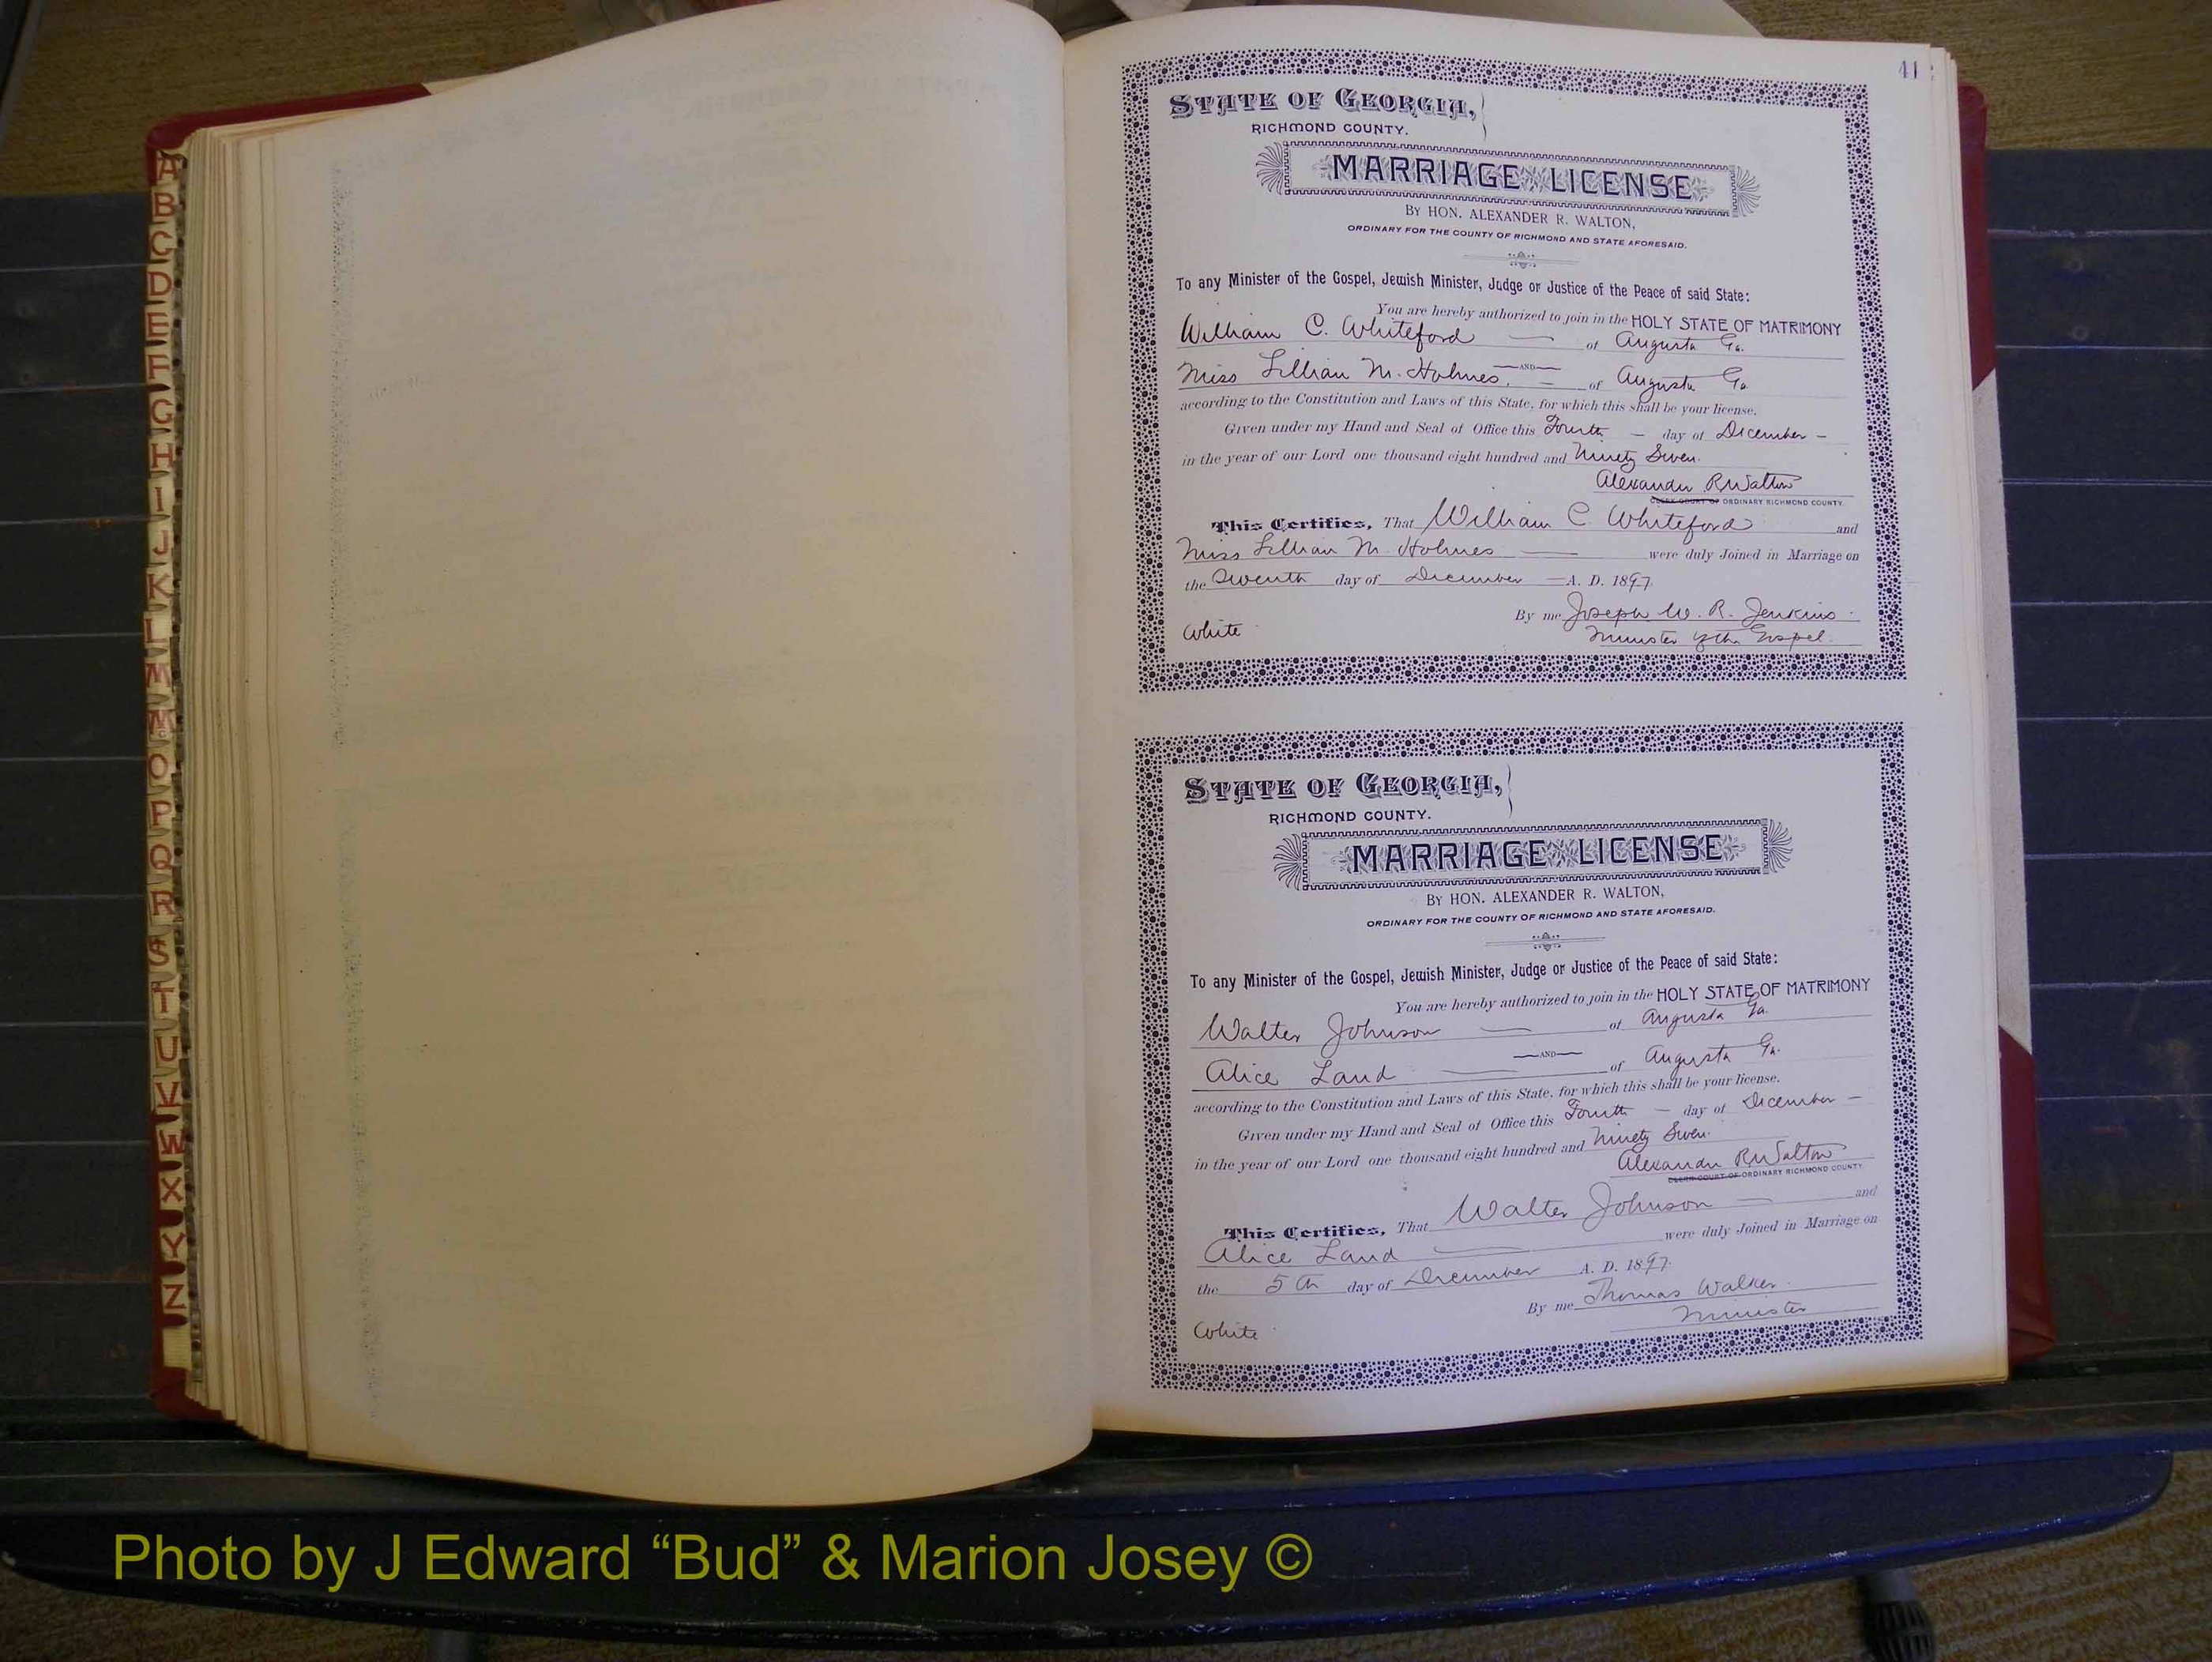 A
B
C
D
E
F
G
H
I
J
K
L
M
Mc
O
P
Q
R
S
T
U
V
W
X
Y
Z
41
STATE OF GEORGIA,
RICHMOND COUNTY.
MARRIAGE LICENSE
BY HON. ALEXANDER R. WALTON,
ORDINARY FOR THE COUNTY OF RICHMOND AND STATE AFORESAID.
To any Minister of the Gospel, Jewish Minister, Judge or Justice of the Peace of said State:
You are hereby authorized to join in the HOLY STATE OF MATRIMONY
William C. Whiteford — of Augusta Ga.
—AND—
Miss Lillian M. Holmes. — of Augusta Ga
according to the Constitution and Laws of this State, for which this shall be your license.
Given under my Hand and Seal of Office this Fourth — day of December —
in the year of our Lord one thousand eight hundred and Ninety Seven.
Alexander R Walton
CLERK COURT OF ORDINARY RICHMOND COUNTY.
This Certifies, That William C. Whiteford and
Miss Lillian M. Holmes — were duly Joined in Marriage on
the Seventh day of December — A. D. 1897.
By me Joseph W. R. Jenkins.
White Minister of the Gospel.
STATE OF GEORGIA,
RICHMOND COUNTY.
MARRIAGE LICENSE
BY HON. ALEXANDER R. WALTON,
ORDINARY FOR THE COUNTY OF RICHMOND AND STATE AFORESAID.
To any Minister of the Gospel, Jewish Minister, Judge or Justice of the Peace of said State:
You are hereby authorized to join in the HOLY STATE OF MATRIMONY
Walter Johnson — of Augusta Ga.
—AND—
Alice Land — of Augusta Ga.
according to the Constitution and Laws of this State, for which this shall be your license.
Given under my Hand and Seal of Office this Fourth — day of December —
in the year of our Lord one thousand eight hundred and Ninety Seven.
Alexander R Walton
CLERK COURT OF ORDINARY RICHMOND COUNTY.
This Certifies, That Walter Johnson — and
Alice Land — were duly Joined in Marriage on
the 5th day of December A. D. 1897.
By me Thomas Walker.
White Minister
Photo by J Edward “Bud” & Marion Josey ©